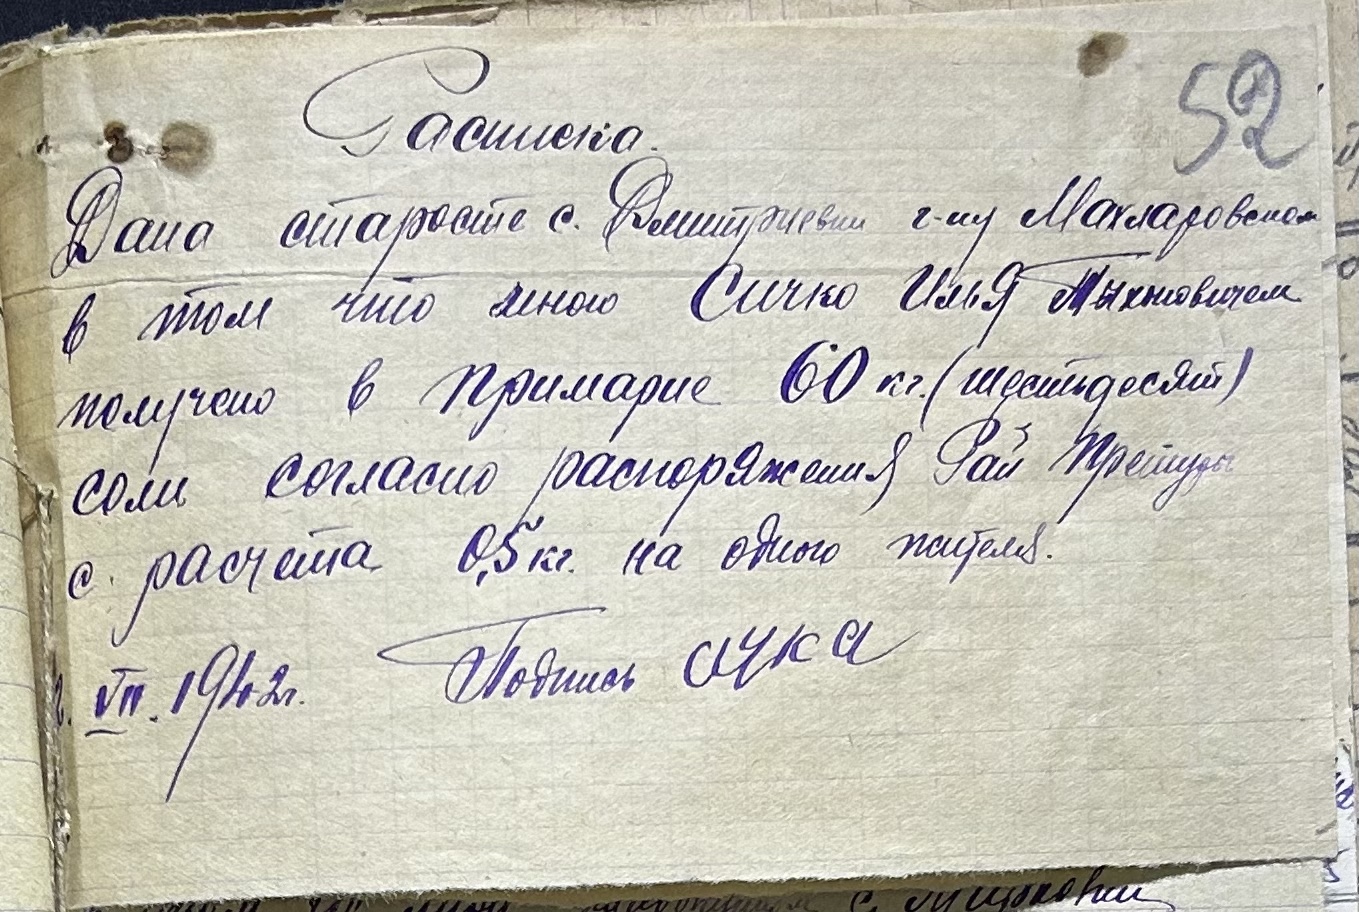 52
Расписка.
Дана старосте с. Дмитриевки г-ну Махларовском
в том что мною Сичко Илья
получено в Примарие 60 кг. (шестьдесят)
соли согласно распоряжения Рай Претуры
с расчета 0,5 кг. на одного жителя.
VII. 1942 г. Подпись